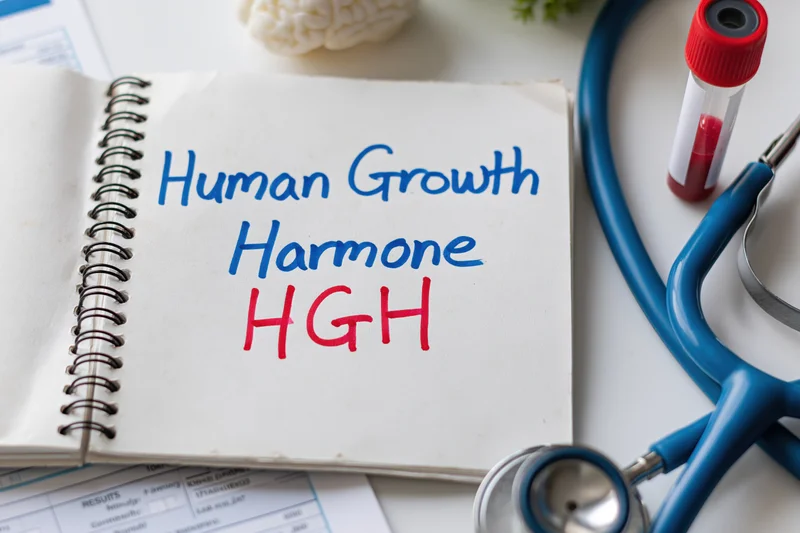 Human Growth
Harmone
HGH
RESULTS